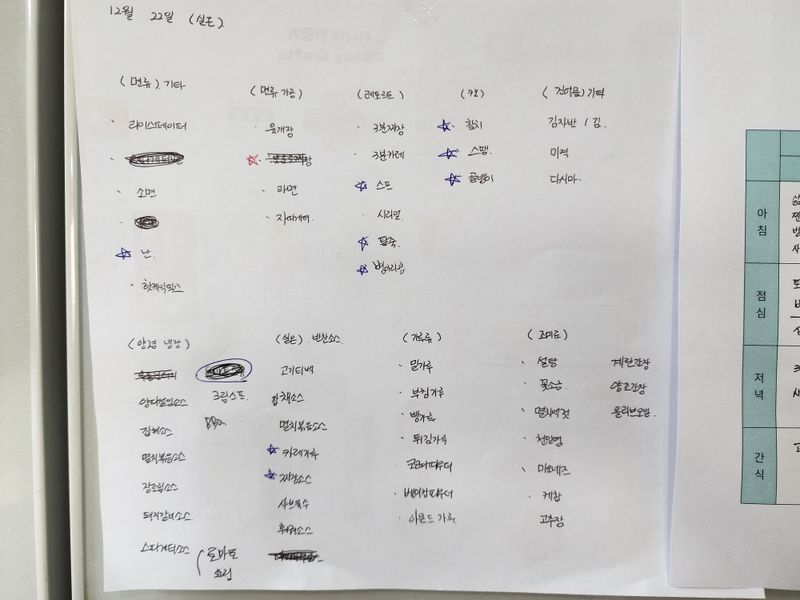 12월 22일 (실온)
(면류) 기타
라이스페이퍼
소면
☆ 난
핫케익믹스
(면류 가공)
육개장
라면
짜파게티
(레토르트)
3분짜장
3분카레
☆ 스프
시리얼
☆ 팥죽
☆ 병아리콩
(캔)
☆ 참치
☆ 스팸
☆ 골뱅이
(건어물) 기타
김자반 / 김
미역
다시마
(양념 냉장)
잡채소스
멸치볶음소스
장조림소스
돼지갈비소스
스파게티소스
토마토
크림
크림스프
BBQ
(실온) 반찬소스
고기티백
잡채소스
멸치볶음소스
☆ 카레가루
☆ 짜장소스
샤브육수
(가루류)
밀가루
부침가루
빵가루
튀김가루
코코아파우더
베이킹파우더
아몬드가루
(조미료)
설탕
꽃소금
멸치액젓
천일염
마요네즈
케찹
고추장
계란간장
양조간장
올리브오일
아침
점심
저녁
간식